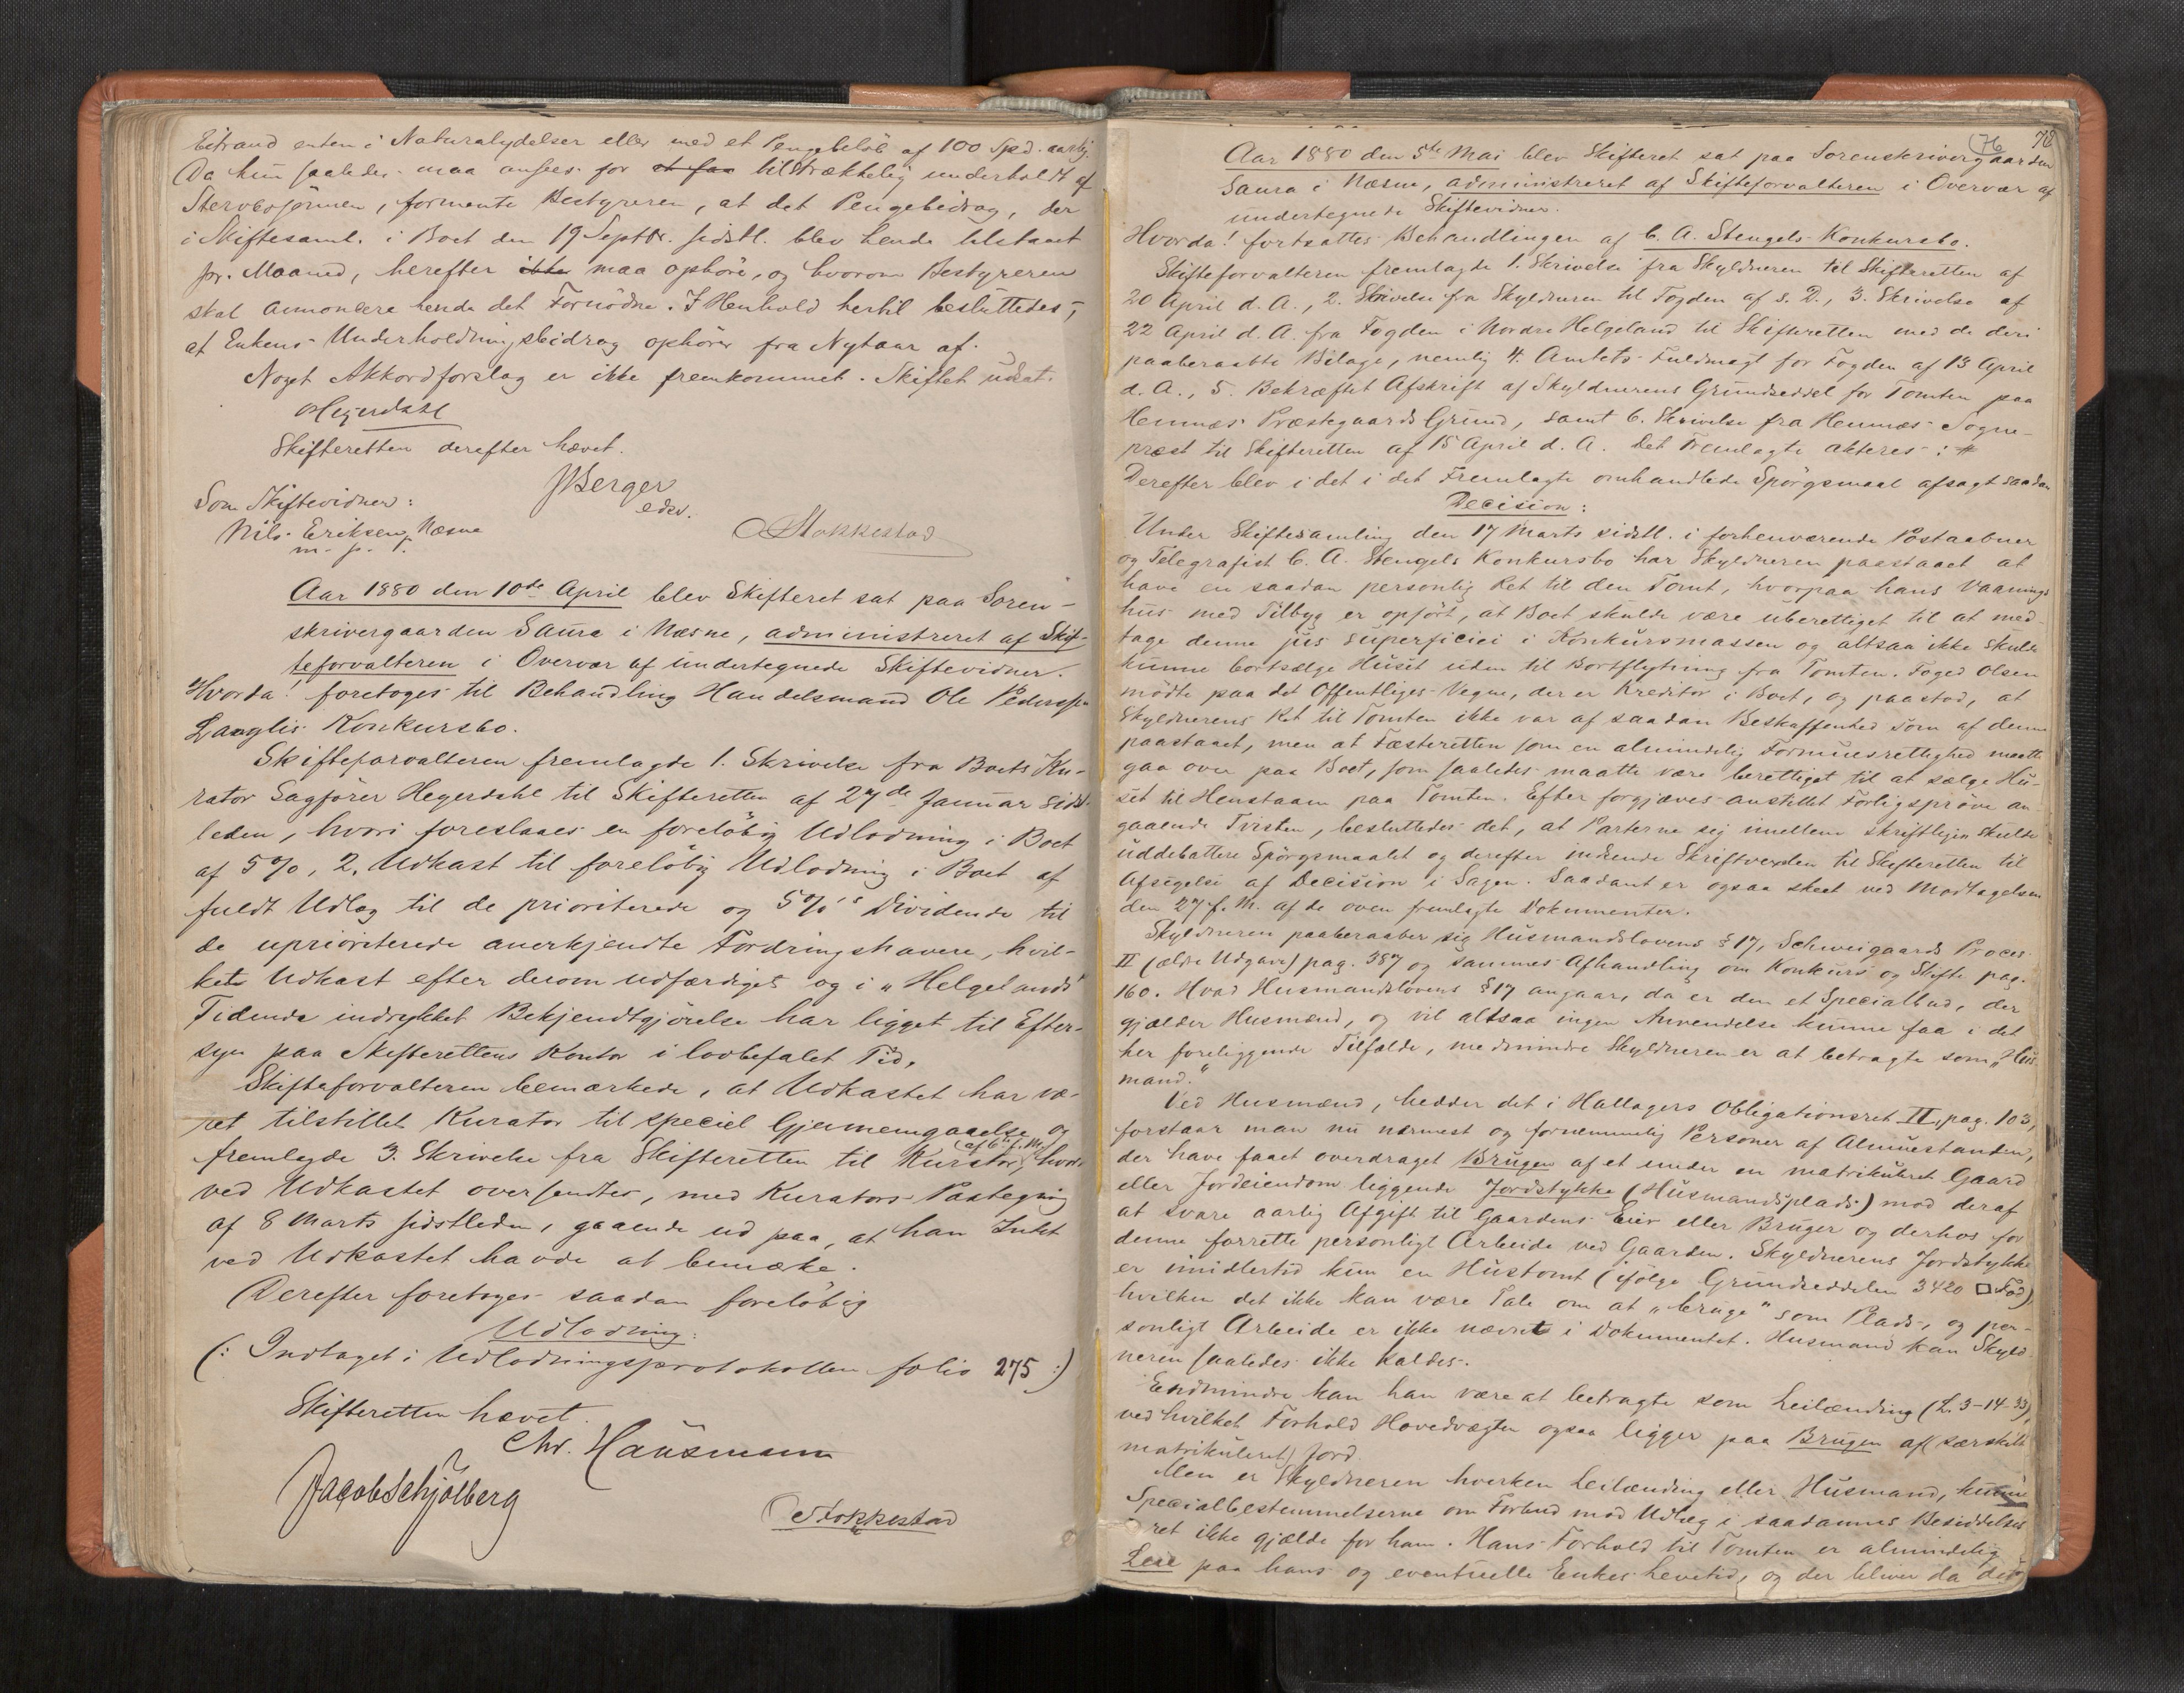 bistand enten i Naturalydelser eller med et Pengebeløb af 100 Spd. aarlig.
Da hun saaledes maa ansees for at faa tilstrækkelig underholdt af
Stervbosønnen, formente Bestyreren, at det Pengebidrag, der
i Skiftesaml. i Boet den 19 Septbr. sidstl. blev hende tilstaaet
pr. Maaned, herefter ikke maa ophøre, og hvorom Bestyreren
skal annoncere hende det Fornødne. I Henhold hertil besluttedes,
at Enkens Underholdningsbidrag ophører fra Nytaar af.
Noget Akkordforslag er ikke fremkommet. Skiftet udsat.
Hegerdahl
Skifteretten derefter hævet.
JBerger
edsv.
Som Skiftevidner:
Nils Eriksen, Næsna
m. p. P.
Stokkestad
Aar 1880 den 10de April blev Skifteret sat paa Soren-
skrivergaarden Saura i Næsne, administreret af Skif-
teforvalteren i Overvær af undertegnede Skiftevidner.
Hvorda! foretoges til Behandling Handelsmand Ole Pedersen
Langlis Konkursbo.
Skifteforvalteren fremlagde 1. Skrivelse fra Boets Ku-
rator Sagfører Hegerdahl til Skifteretten af 27de Januar sidst-
leden, hvori foreslaaes en foreløbig Udlodning i Boet
af 5%, 2. Udkast til foreløbig Udlodning i Boet af
fuldt Udlæg til de prioriterede og 5%'s Dividende til
de uprioriterede anerkjendte Fordringshavere, hvil-
ket Udkast efter derom udfærdiget og i "Helgelands
Tidende indrykket Bekjendtgjørelse har ligget til Efter-
syn paa Skifterettens Kontor i lovbefalet Tid.
Skifteforvalteren bemærkede, at Udkastet har væ-
ret tilstillet Kurator til speciel Gjennemgaaelse og
fremlagde 3. Skrivelse fra Skifteretten til Kurator (af 6te f. M.) hvor-
ved Udkastet oversendtes, med Kurators Paategning
af 8 Marts sidstleden, gaaende ud paa, at han Intet
ved Udkastet havde at bemærke.
Derefter foretoges saadan foreløbig
Udlodning:
(: Indtaget i Udlodningsprotokollen folio 275 :)
Skifteretten hævet.
Chr. Hausmann
Jacob Schjölberg
Stokkestad
76 78
Aar 1880 den 5te Mai blev Skifteret sat paa Sorenskrivergaarden
Saura i Næsne, administreret af Skifteforvalteren i Overvær af
undertegnede Skiftevidner.
Hvorda! fortsattes Behandlingen af C. A. Stengels Konkursbo.
Skifteforvalteren fremlagde 1. Skrivelse fra Skyldneren til Skifteretten af
20 April d. A., 2. Skrivelse fra Skyldneren til Fogden af s. D., 3. Skrivelse af
22 April d. A. fra Fogden i Nordre Helgeland til Skifteretten med de deri
paaberaabte Bilage, nemlig 4. Amtets Fuldmagt for Fogden af 13 April
d. A., 5. Bekræftet Afskrift af Skyldnerens Grundseddel for Tomten paa
Hemnæs Præstegaards Grund, samt 6. Skrivelse fra Hemnæs Sogne-
præst til Skifteretten af 15 April d. A. Det Fremlagte akteres: #
Derefter blev i det i det Fremlagte omhandlede Spörgsmaal afsagt saadan
Decision:
Under Skiftesamling den 17 Marts sidstl. i forhenværende Postaabner
og Telegrafist C. A. Stengels Konkursbo har Skyldneren paastaaet at
have en saadan personlig Ret til den Tomt, hvorpaa hans Vaanings-
hus med Tilbyg er opført, at Boet skulde være uberettiget til at med-
tage denne jus superficiei i Konkursmassen og altsaa ikke skulde
kunne bortsælge Huset uden til Bortflytning fra Tomten. Foged Olsen
mödte paa det Offentliges Vegne, der er Kreditor i Boet, og paastod, at
Skyldnerens Ret til Tomten ikke var af saadan Beskaffenhed som af denne
paastaaet, men at Fæsteretten som en almindelig Formuesrettighed maatte
gaa over paa Boet, som saaledes maatte være berettiget til at sælge Hu-
set til Henstaaen paa Tomten. Efter forgjæves anstillet Forligsprøve an-
gaaende Tvisten, besluttedes det, at Parterne sig imellem skriftligen skulde
uddebattere Spörgsmaalet og derefter indsende Skriftvexlen til Skifteretten til
Afsigelse af Decision i Sagen. Saadant er ogsaa skeet ved Modtagelsen
den 27 f. M. af de oven fremlagte Dokumenter.
Skyldneren paaberaaber sig Husmandslovens § 17, Schweigaards Proces
II (ældre Udgave) pag. 387 og sammes Afhandling om Konkurs og Skifte pag.
160. Hvad Husmandslovens § 17 angaar, da er den et Specialbud, der
gjælder Husmænd, og vil altsaa ingen Anvendelse kunne faa i det
her foreliggende Tilfælde, medmindre Skyldneren er at betragte som "Hus-
mand."
Ved Husmænd, hedder det i Hallagers Obligationsret II, pag. 103,
forstaar man nu nærmest og fornemmelig Personer af Almuestanden,
der have faaet overdraget Brugen af et under en matrikuleret Gaard
eller Jordeiendom liggende Jordstykke (Husmandsplads) mod deraf
at svare aarlig Afgift til Gaardens Eier eller Bruger og derhos for
denne forrette personligt Arbeide ved Gaarden. Skyldnerens Jordstykke
er imidlertid kun en Hustomt (ifölge Grundseddelen 3420 □ Fod),
hvilken det ikke kan være Tale om at "bruge" som Plads, og per-
sonligt Arbeide er ikke nævnt i Dokumentet. Husmand kan Skyld-
neren saaledes ikke kaldes.
Endmindre kan han være at betragte som Leilænding (L. 3-14-33),
ved hvilket Forhold Hovedvægten ogsaa ligger paa Brugen af (særskilt
matrikuleret) Jord.
Men er Skyldneren hverken Leilænding eller Husmand, kunne
Specialbestemmelserne om Forbud mod Udlæg i saadannes Besiddelses-
ret ikke gjælde for ham. Hans Forhold til Tomten er almindelig
Leie paa hans og eventuelle Enkes Levetid, og der bliver da det